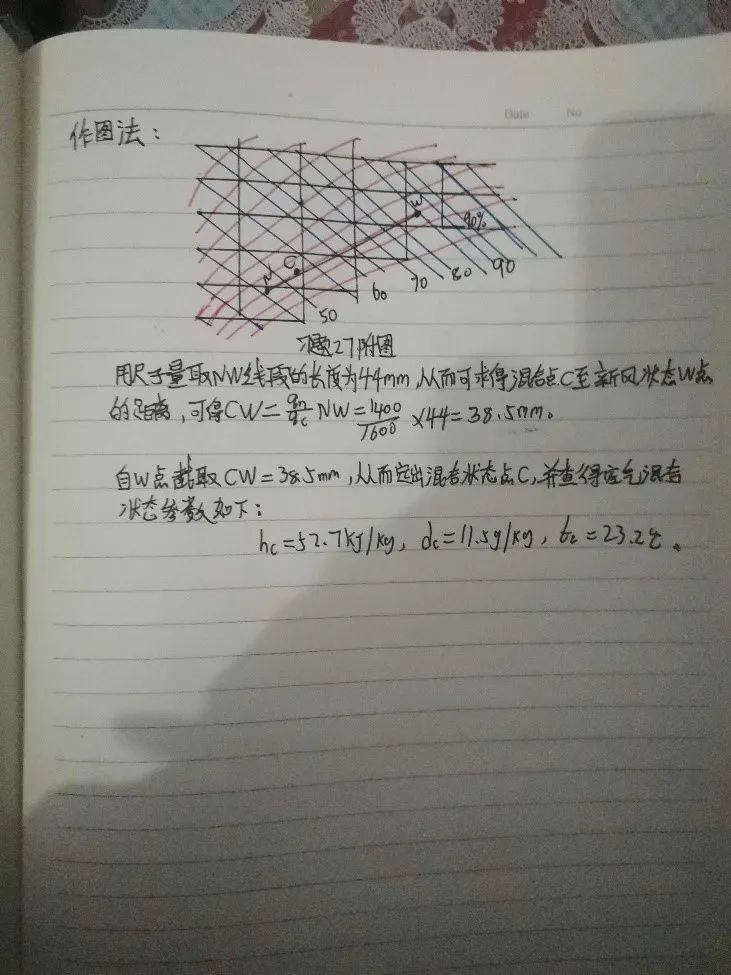 Date No
作图法：
W
90%
C
N
50
60
70
80
90
习题27附图
用尺子量取NW线段的长度为44mm，从而可求得混合点C至新风状态W点
的距离，可得CW=qn/qc NW=1400/1600×44=38.5mm。
自W点截取CW=38.5mm，从而定出混合状态点C，并查得空气混合
状态参数如下：
hc=52.7kJ/kg，dc=11.5g/kg，tc=23.2℃。